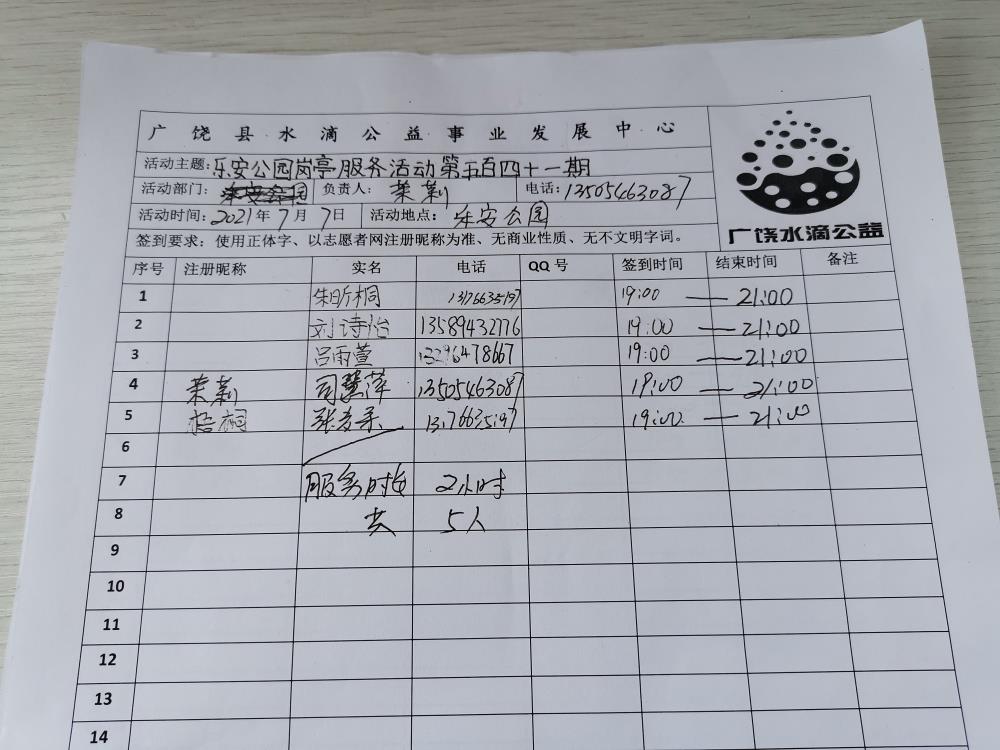 广饶县水滴公益事业发展中心
活动主题：乐安公园岗亭服务活动第五百四十一期
活动部门： 负责人：茉莉 电话：13505463087
活动时间：2021年7月7日 活动地点：乐安公园
签到要求：使用正体字、以志愿者网注册昵称为准、无商业性质、无不文明字词。
广饶水滴公益
序号 注册昵称 实名 电话 QQ号 签到时间 结束时间 备注
1 朱昕桐 13176635197 19:00 — 21:00
2 刘诗怡 13589432776 19:00 — 21:00
3 吕雨萱 13296478667 19:00 — 21:00
4 茉莉 司慧萍 13505463087 19:00 — 21:00
5 梧桐 13176635197 19:00 — 21:00
6
7 服务时长 2小时
8 共 5人
9
10
11
12
13
14